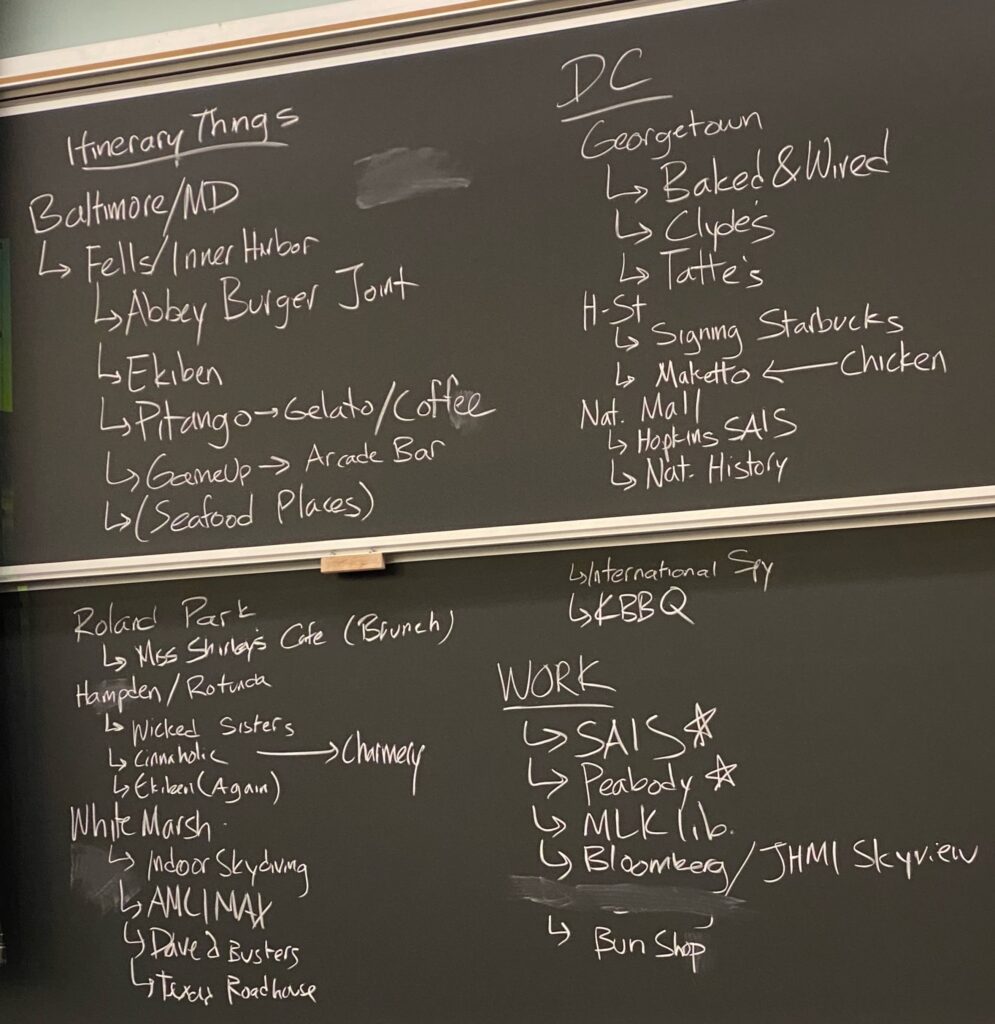 Itinerary Things
Baltimore/MD
↳ Fells/Inner Harbor
↳ Abbey Burger Joint
↳ Ekiben
↳ Pitango → Gelato/Coffee
↳ GameUp → Arcade Bar
↳ (Seafood Places)
Roland Park
↳ Miss Shirley's Cafe (Brunch)
Hampden/Rotunda
↳ Wicked Sisters
↳ Cinnaholic → Charmery
↳ Ekiben (Again)
White Marsh
↳ Indoor Skydiving
↳ AMC IMAX
↳ Dave & Busters
↳ Texas Roadhouse
DC
Georgetown
↳ Baked & Wired
↳ Clyde's
↳ Tatte's
H-St
↳ Signing Starbucks
↳ Maketto ← Chicken
Nat. Mall
↳ Hopkins SAIS
↳ Nat. History
↳ International Spy
↳ KBBQ
WORK
↳ SAIS ☆
↳ Peabody ☆
↳ MLK lib.
↳ Bloomberg/JHMI Skyview
↳ Bun Shop